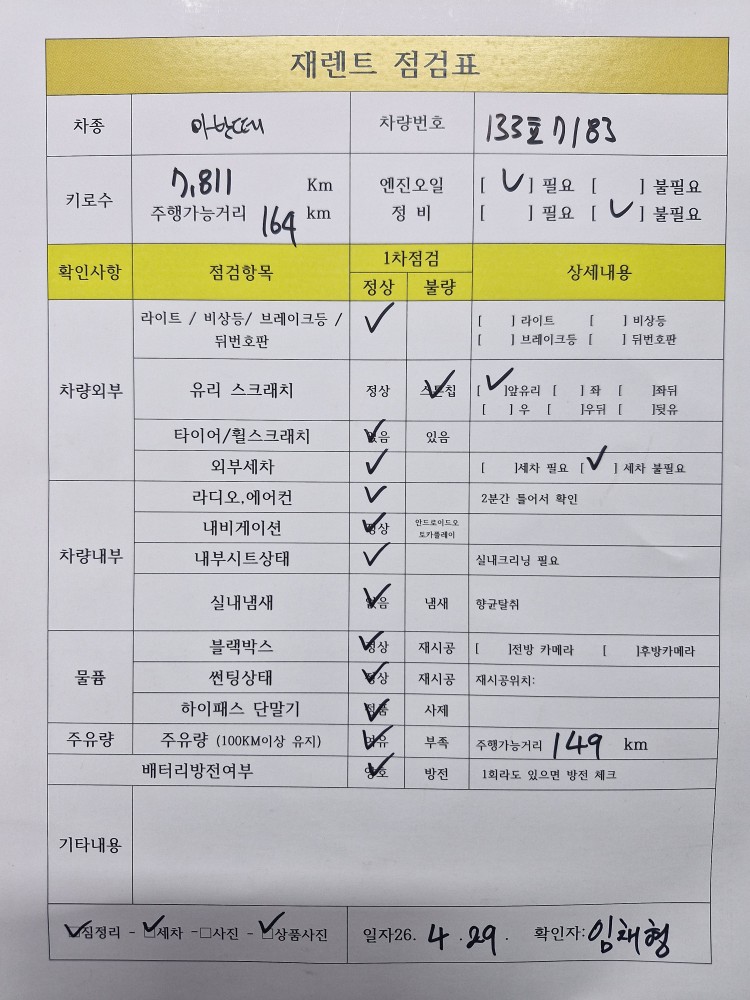 재렌트 점검표
차종 아반떼 차량번호 133호 7183
키로수 7,811 Km 엔진오일 [ ✓ ] 필요 [ ] 불필요
주행가능거리 164 km 정 비 [ ] 필요 [ ✓ ] 불필요
확인사항 점검항목 1차점검 상세내용
정상 불량
차량외부 라이트 / 비상등/ 브레이크등 / 뒤번호판 ✓ [ ] 라이트 [ ] 비상등
[ ] 브레이크등 [ ] 뒤번호판
유리 스크래치 정상 ✓ 스톤칩 [ ✓ ]앞유리 [ ] 좌 [ ]좌뒤
[ ] 우 [ ]우뒤 [ ]뒷유
타이어/휠스크래치 ✓ 없음 있음
외부세차 ✓ [ ]세차 필요 [ ✓ ] 세차 불필요
차량내부 라디오,에어컨 ✓ 2분간 틀어서 확인
내비게이션 ✓ 정상 안드로이드오토카플레이
내부시트상태 ✓ 실내크리닝 필요
실내냄새 ✓ 없음 냄새 향균탈취
물품 블랙박스 ✓ 정상 재시공 [ ]전방 카메라 [ ]후방카메라
썬팅상태 ✓ 정상 재시공 재시공위치:
하이패스 단말기 ✓ 정품 사제
주유량 주유량 (100KM이상 유지) ✓ 여유 부족 주행가능거리 149 km
배터리방전여부 ✓ 양호 방전 1회라도 있으면 방전 체크
기타내용
☑짐정리 - ☑세차 -□사진 - ☑상품사진 일자26. 4 . 29 . 확인자: 임채형